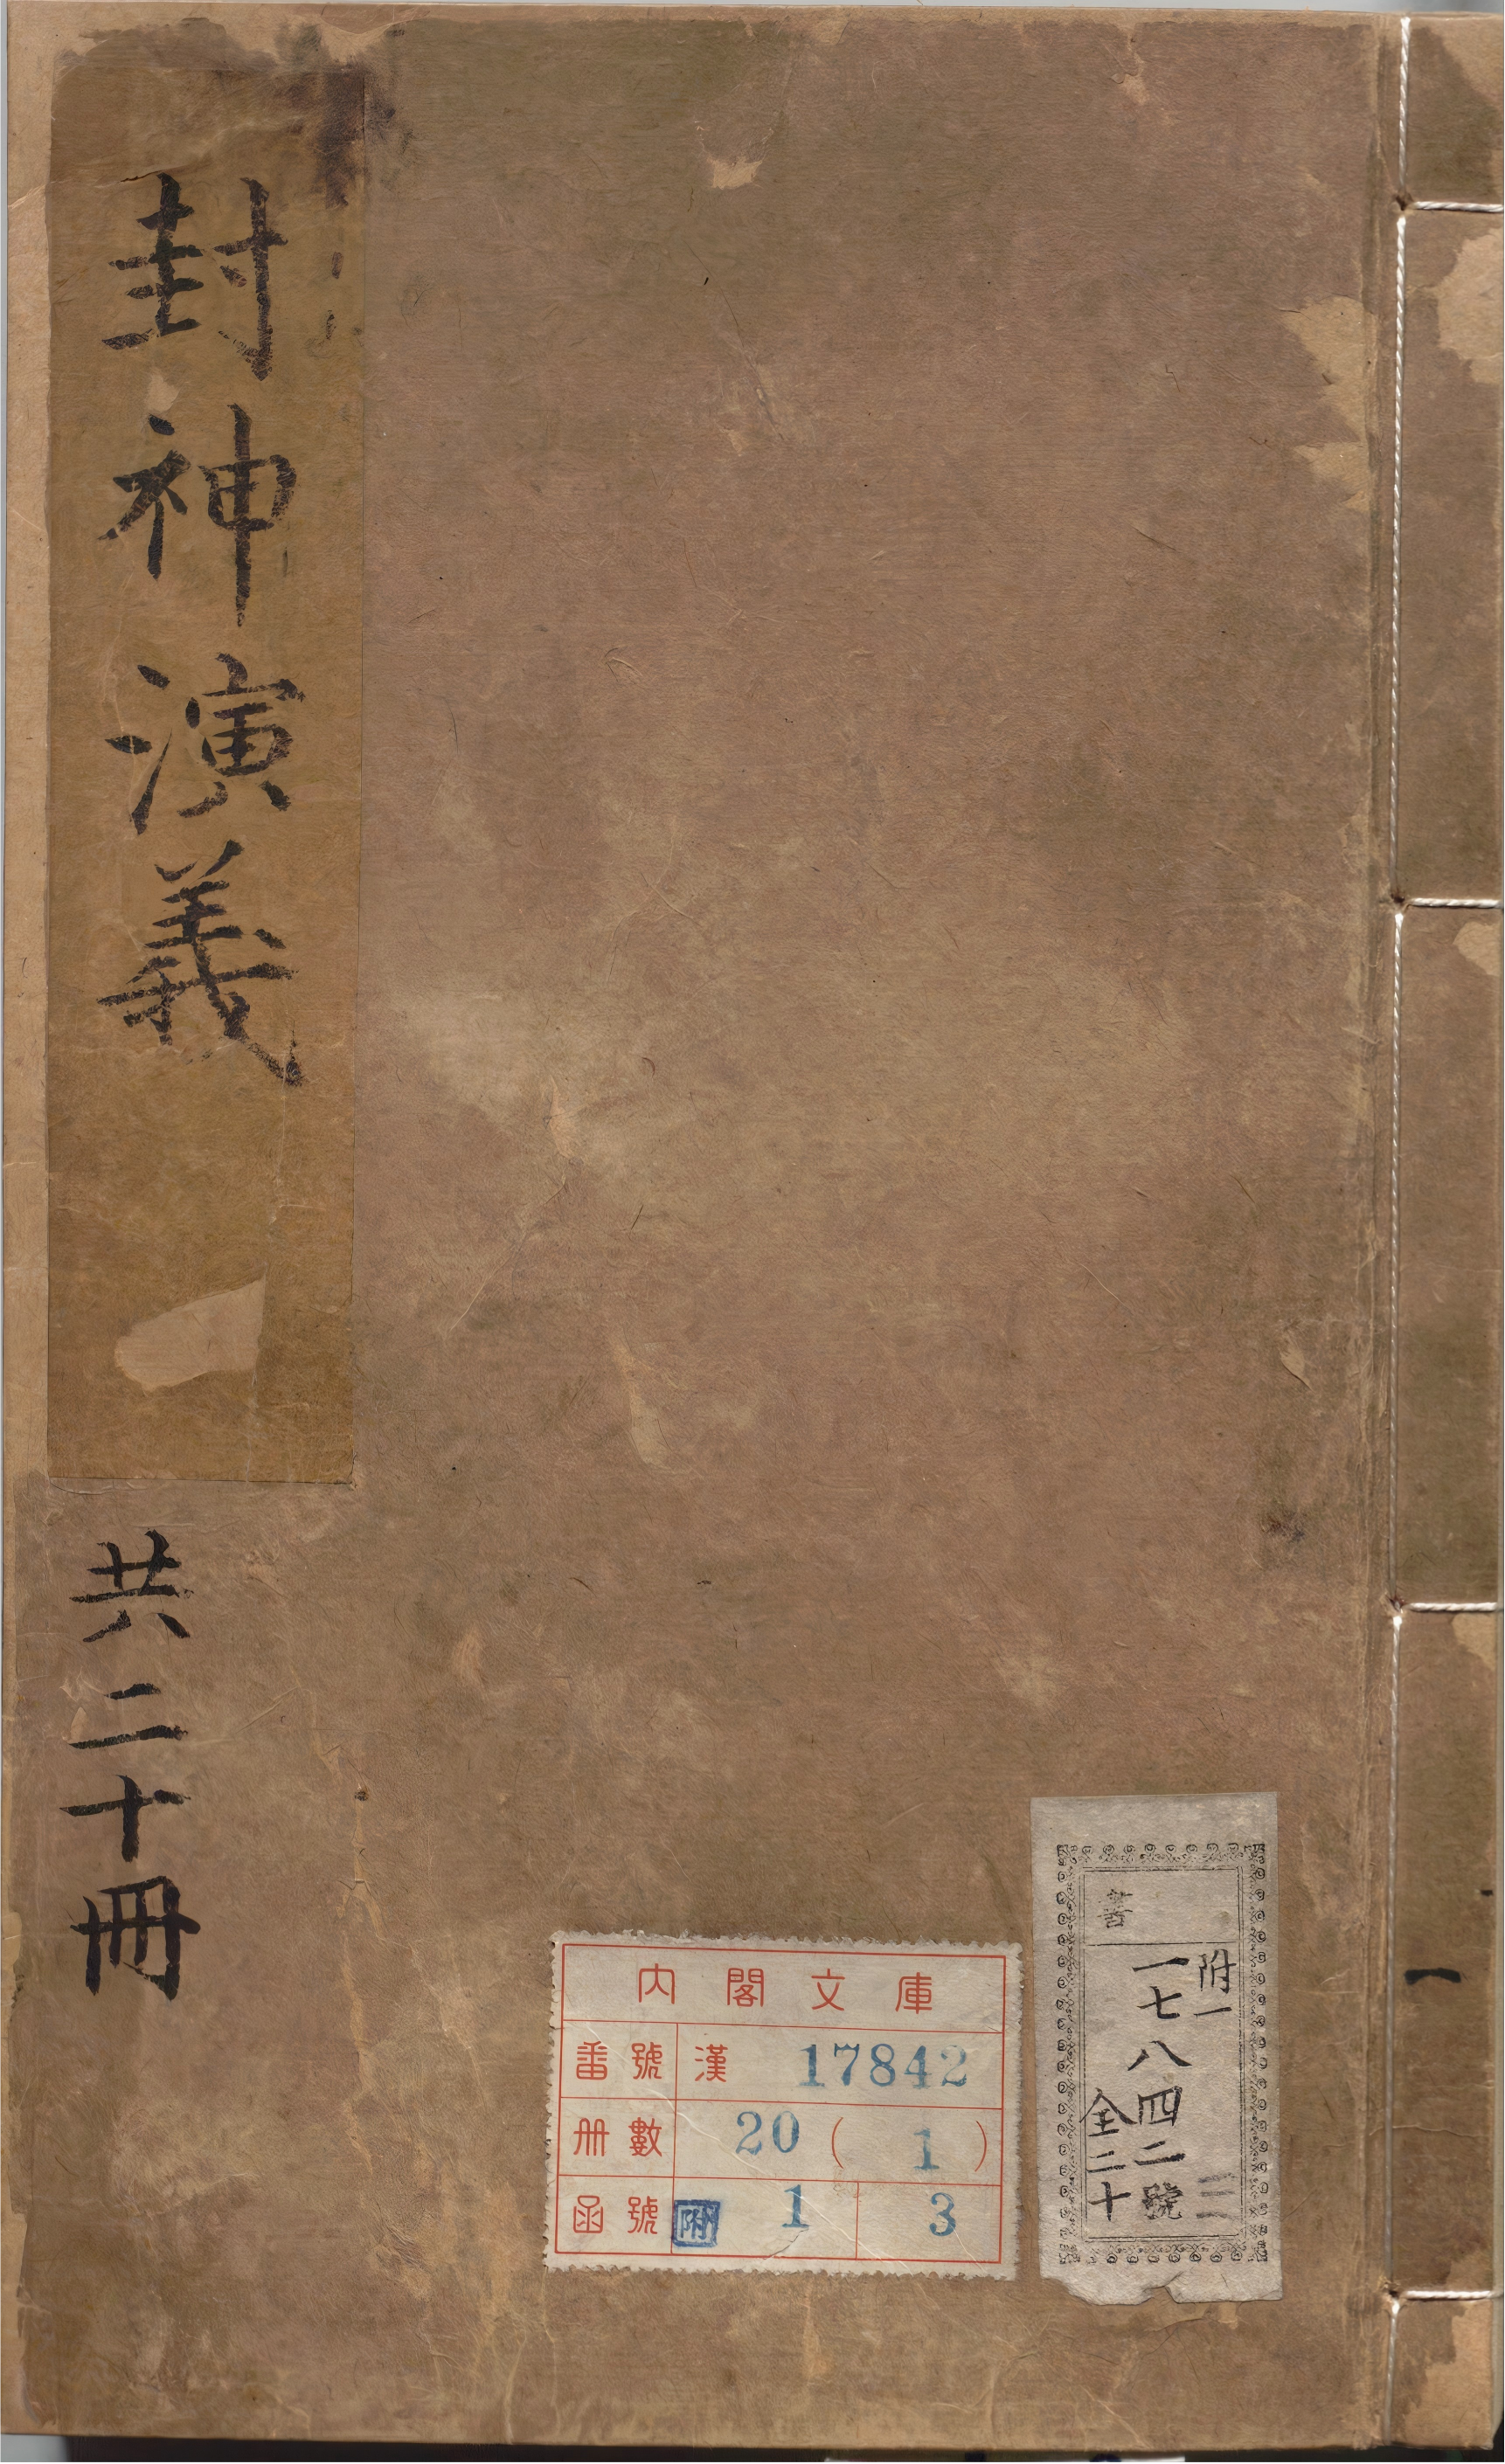 封神演義
共二十冊
内閣文庫
番號 漢 17842
冊數 20 ( 1 )
函號 附 1 3
附一
一七八四二號
全二十
一